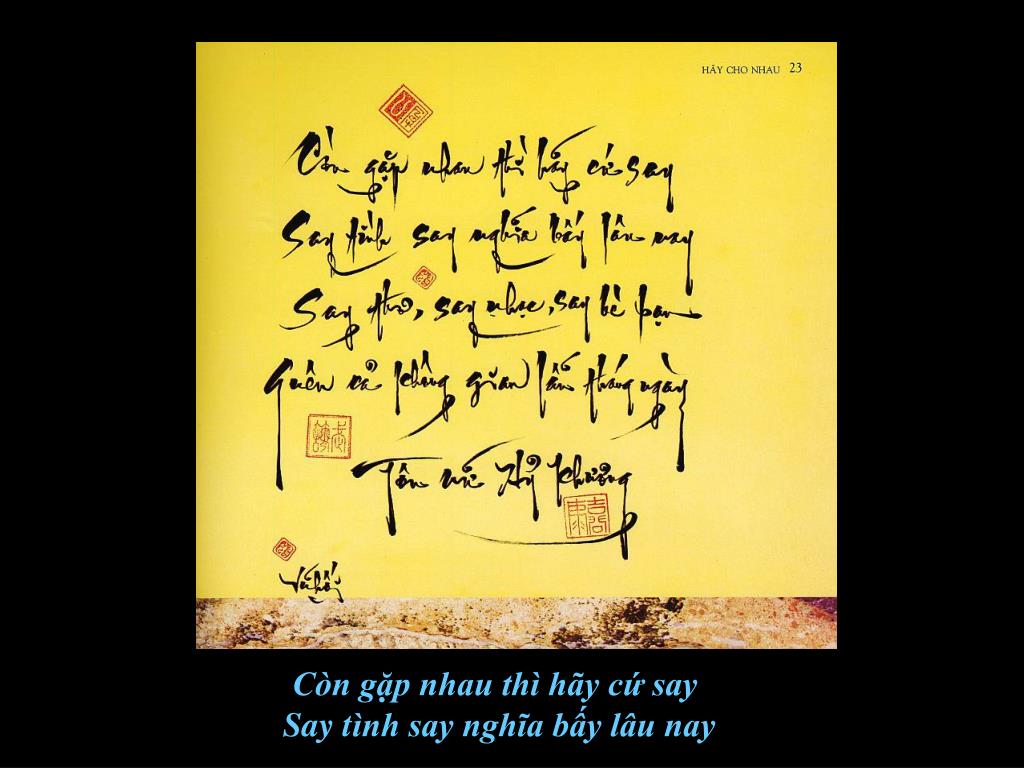 HÃY CHO NHAU 23
Còn gặp nhau thì hãy cứ say
Say tình say nghĩa bấy lâu nay
Say thơ, say nhạc, say bè bạn
Quên cả không gian lẫn tháng ngày
Tôn nữ Hỷ Khương
Còn gặp nhau thì hãy cứ say
Say tình say nghĩa bấy lâu nay